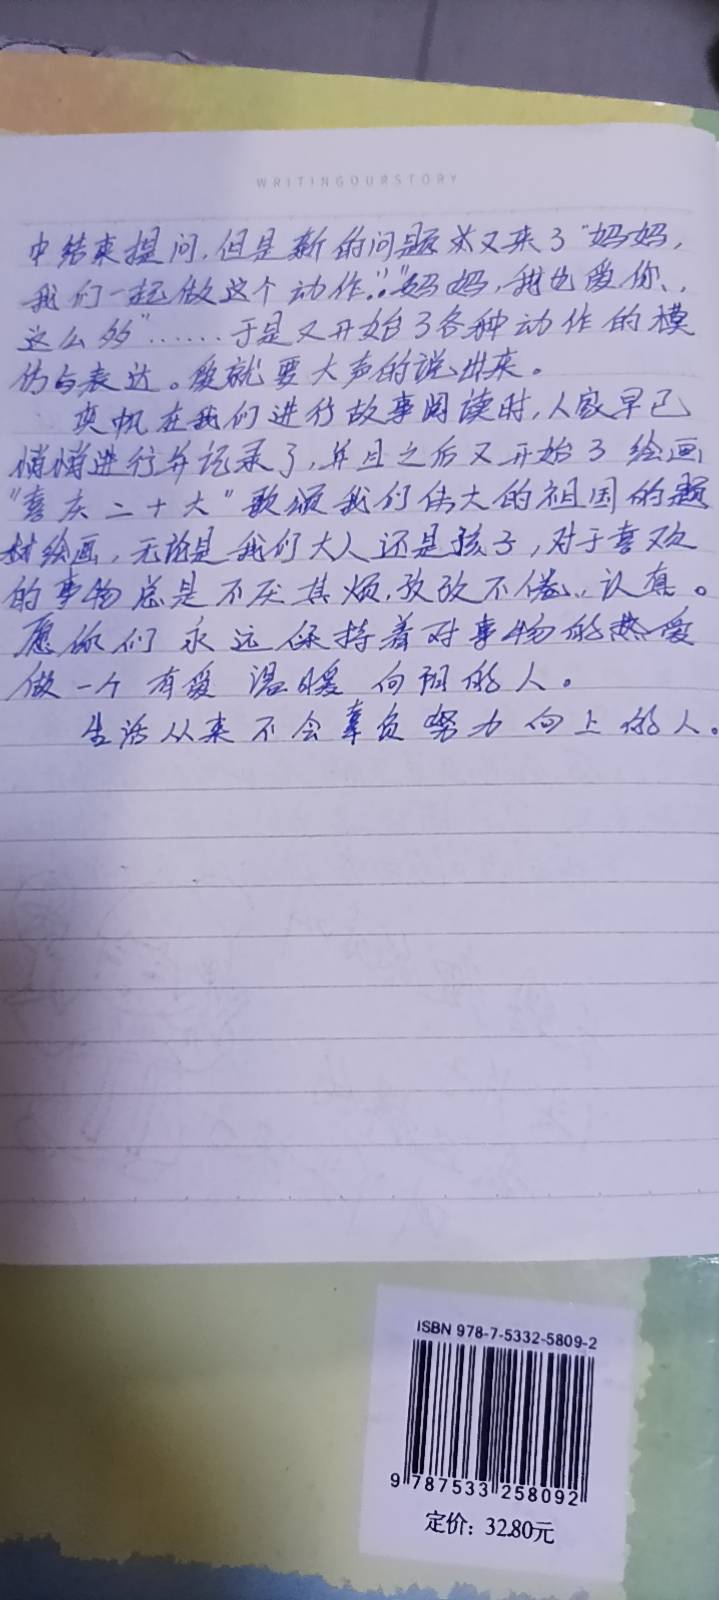 WRITINGOURSTORY
中结束提问,但是新的问题又来了“妈妈,
我们一起做这个动作”。“妈妈,我也爱你、
这么多”……于是又开始了各种动作的模
仿与表达。爱就要大声的说出来。
奕帆在我们进行故事阅读时,人家早已
悄悄进行并记录了,并且之后又开始了绘画
“喜庆二十大”歌颂我们伟大的祖国的题
材绘画,无论是我们大人还是孩子,对于喜欢
的事物总是不厌其烦,孜孜不倦,认真。
愿你们永远保持着对事物的热爱
做一个有爱 温暖 向阳的人。
生活从来不会辜负努力向上的人。
ISBN 978-7-5332-5809-2
9 787533 258092
定价:32.80元